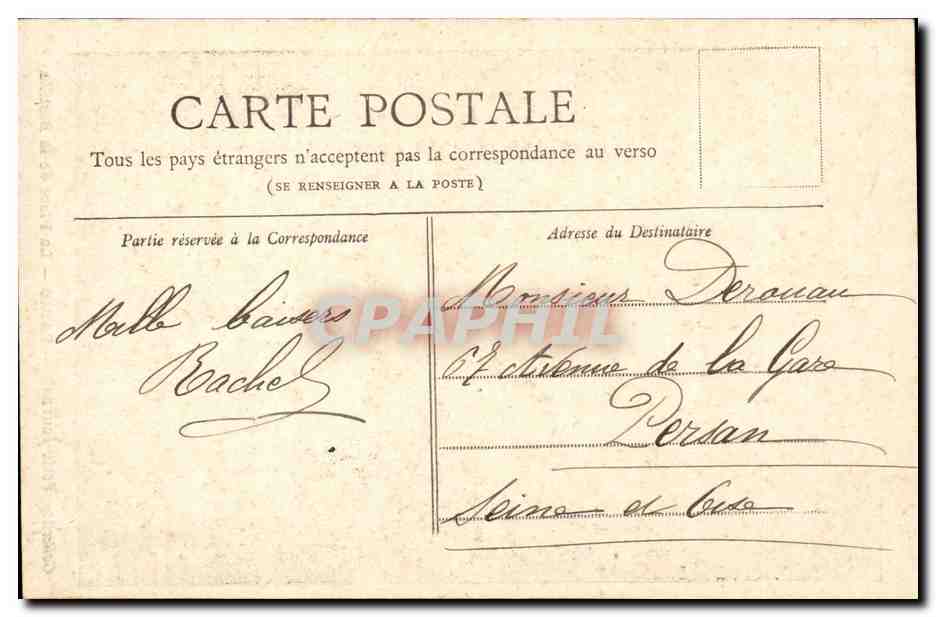 CARTE POSTALE
Tous les pays étrangers n'acceptent pas la correspondance au verso
(SE RENSEIGNER A LA POSTE)
Partie réservée à la Correspondance
Mille baisers
Rachel
Adresse du Destinataire
Monsieur Derouau
67 Avenue de la Gare
Persan
Seine et Oise
CPAPHIL